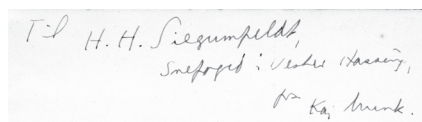 Til H. H. Siegumfeldt,
Snefoged i Vester Hassing,
fra
Kaj Munk.